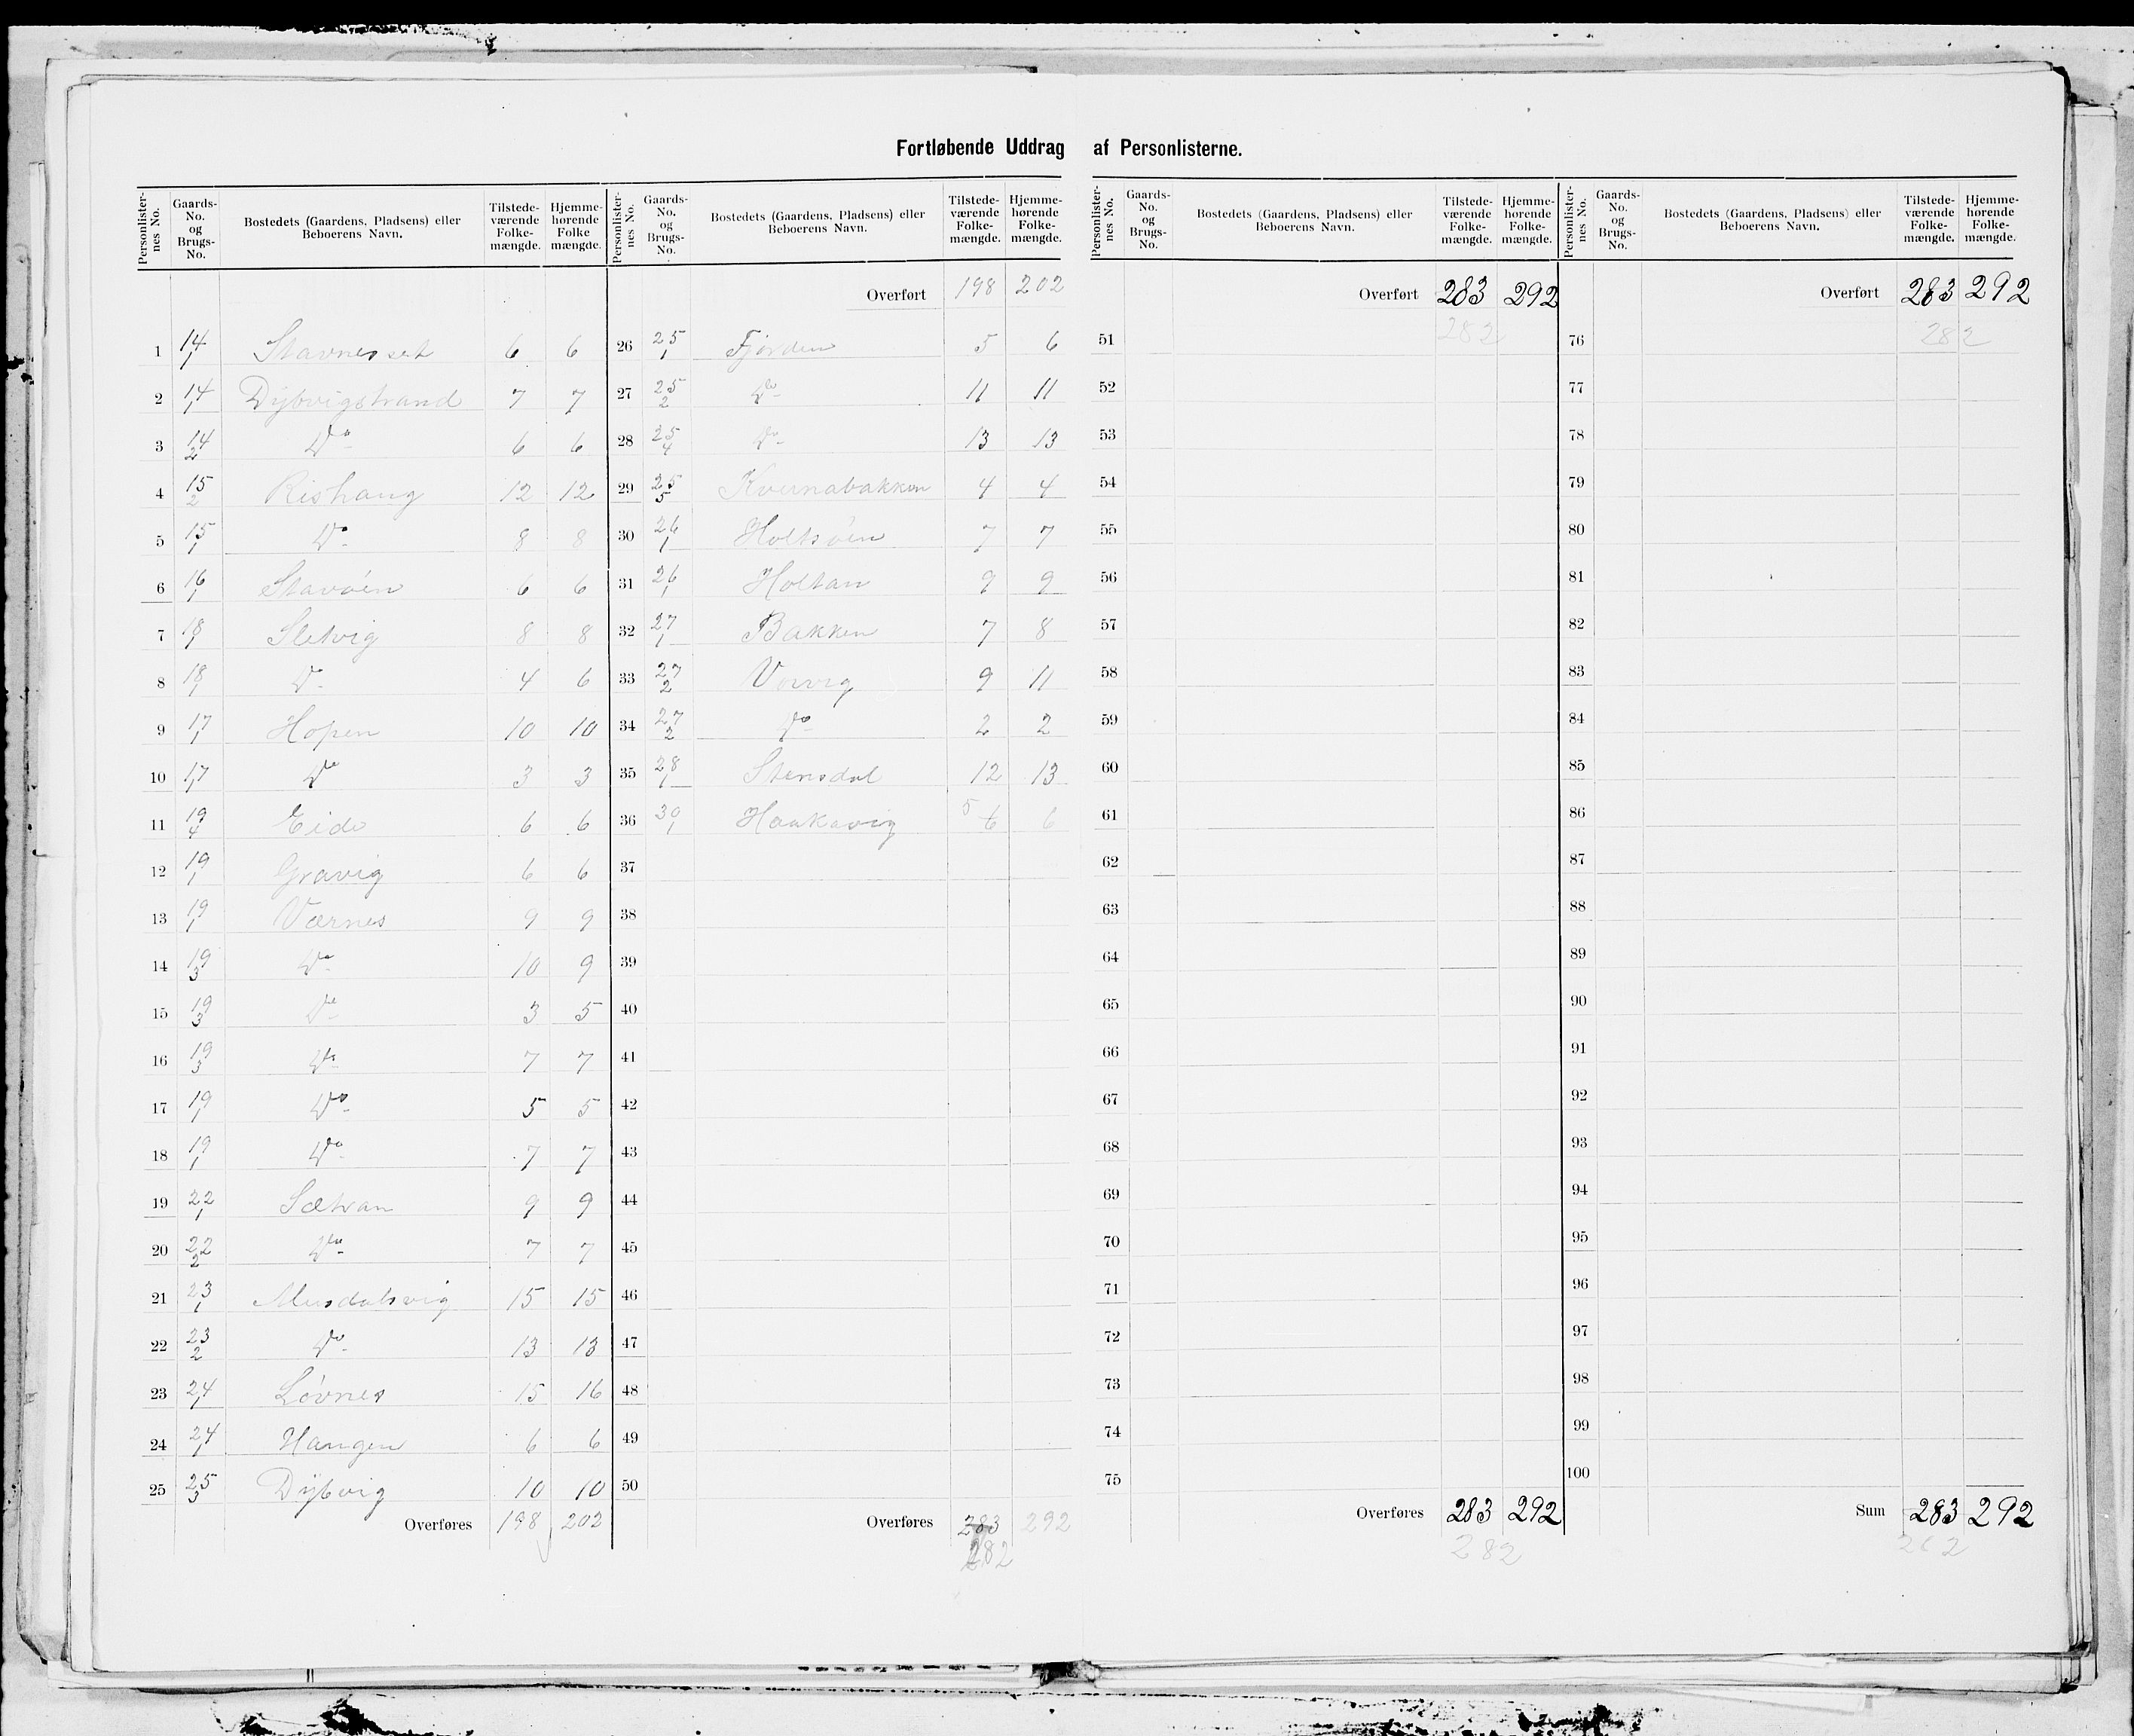 Fortløbende Uddrag af Personlisterne.
Personlister-nes No. | Gaards-No. og Brugs-No. | Bostedets (Gaardens, Pladsens) eller Beboerens Navn. | Tilstede-værende Folke-mængde. | Hjemme-hørende Folke mængde.
1 14/1 Stavneset 6 6
2 14/1 Dybvigstrand 7 7
3 14/2 Do 6 6
4 15/2 Rishaug 12 12
5 15/1 Do 8 8
6 16/1 Stavøen 6 6
7 18/1 Sletvig 8 8
8 18/1 Do 4 6
9 17/1 Hopen 10 10
10 17/1 Do 3 3
11 19/4 Eide 6 6
12 19/1 Gravig 6 6
13 19/1 Værnes 9 9
14 19/3 Do 10 9
15 19/3 Do 3 5
16 19/3 Do 7 7
17 19/1 Do 5 5
18 19/1 Do 7 7
19 22/1 Sætran 9 9
20 22/2 Do 7 7
21 23/1 Musdalsvig 15 15
22 23/2 Do 13 13
23 24/1 Løvnes 15 16
24 24/1 Haugen 6 6
25 25/3 Dybvig 10 10
Overføres 198 202
Personlister-nes No. | Gaards-No. og Brugs-No. | Bostedets (Gaardens, Pladsens) eller Beboerens Navn. | Tilstede-værende Folke-mængde. | Hjemme-hørende Folke-mængde.
Overført 198 202
26 25/1 Fjorden 5 6
27 25/2 Do 11 11
28 25/4 Do 13 13
29 25/5 Kvernabakken 4 4
30 26/1 Holtsøen 7 7
31 26/1 Holtan 9 9
32 27/1 Bakken 7 8
33 27/2 Vorvig 9 11
34 27/2 Do 2 2
35 28/1 Stensdal 12 13
36 30/1 Haukavig 5 6 6
37
38
39
40
41
42
43
44
45
46
47
48
49
50
Overføres 283 292
282
Personlister-nes No. | Gaards-No. og Brugs-No. | Bostedets (Gaardens, Pladsens) eller Beboerens Navn. | Tilstede-værende Folke-mængde. | Hjemme-hørende Folke-mængde.
Overført 283 292
282
51
52
53
54
55
56
57
58
59
60
61
62
63
64
65
66
67
68
69
70
71
72
73
74
75
Overføres 283 292
282
Personlister-nes No. | Gaards-No. og Brugs-No. | Bostedets (Gaardens, Pladsens) eller Beboerens Navn. | Tilstede-værende Folke-mængde. | Hjemme-hørende Folke-mængde.
Overført 283 292
282
76
77
78
79
80
81
82
83
84
85
86
87
88
89
90
91
92
93
94
95
96
97
98
99
100
Sum 283 292
282